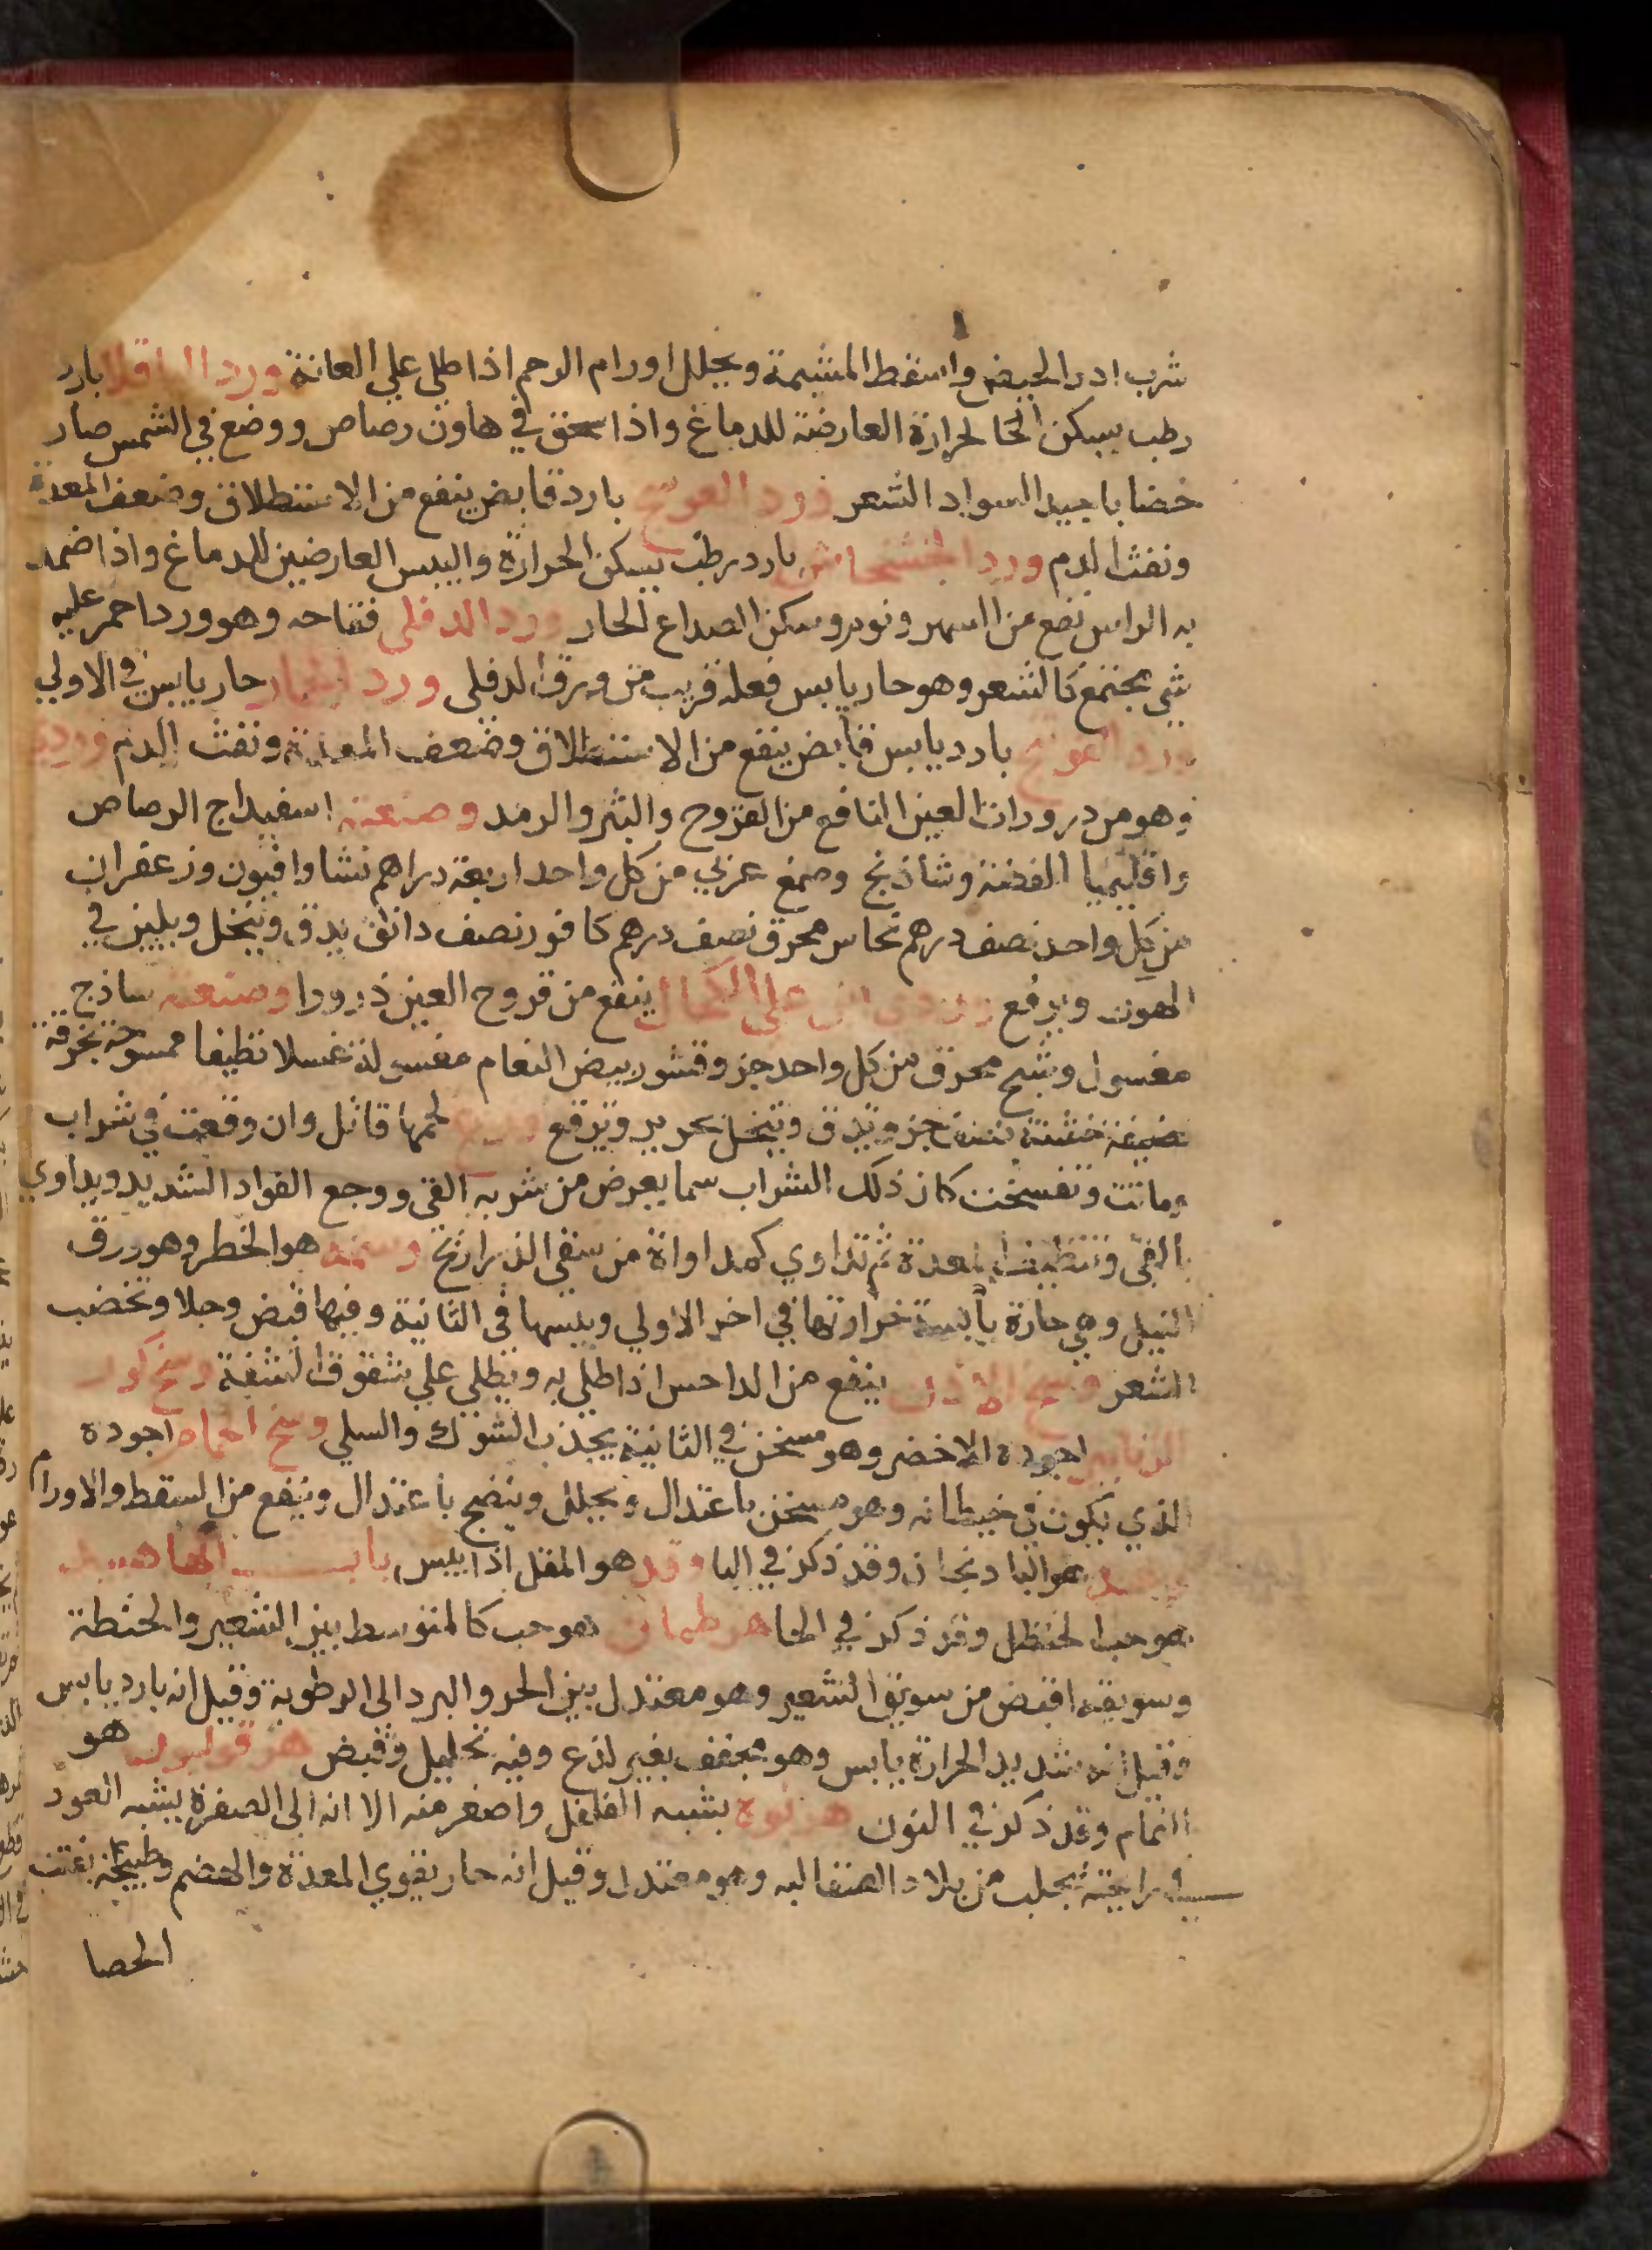 شرب ادر الحيض واسقط المشيمة ويحلل اورام الرحم اذا طلي علي العانة ورد الباقلا بارد
رطب يسكن الحرارة العارضة للدماغ واذا سحق في هاون رصاص ووضع في الشمس صار
خضابا جيدا لسواد الشعر ورد العوسج بارد قابض ينفع من الاستطلاق وضعف المعدة
ونفث الدم ورد الخشخاش بارد رطب يسكن الحرارة واليبس العارضين للدماغ واذا ضمد
به الراس نفع من السهر ونوم وسكن الصداع الحار ورد الدفلي فقاحه وهو ورد احمر عليه
شي مجتمع كالشعر وهو حار يابس فعله قريب من ورق الدفلي ورد حار يابس في الاولي
ورد العوسج بارد يابس قابض ينفع من الاستطلاق وضعف المعدة ونفث الدم وردي
وهو من درورات العين النافع من القروح والبثر والرمد وصنعته اسفيداج الرصاص
واقليميا الفضة وشاذنج وصمغ عربي من كل واحد اربعة دراهم نشا وافيون وزعفران
من كل واحد نصف درهم نحاس محرق نصف درهم كافور نصف دانق يدق وينخل ويلين في
الهون ويرفع علي الكحال ينفع من قروح العين ذرورا وصنعته ساذج
مغسول وشبح محرق من كل واحد جزو قشور بيض النعام مغسولة غسلا نظيفا ممسوحة بخرقة
خشنة جزو يدق وينخل بحرير ويرفع وزغ لحمها قاتل وان وقعت في شراب
وماتت وتفسخت كان ذلك الشراب سما يعرض من شربه القي ووجع الفواد الشديد ويداوي
بالقي وتنظيف المعدة ثم تداوي كمداواة من سقي الذراريح وسمه هو الخطر وهو ورق
النيل وهي حارة يابسة حرارتها في اخر الاولي ويبسها في الثانية وفيها قبض وجلا وتخضب
الشعر وسخ الاذن ينفع من الداحس اذا طلي به ويطلي علي شقوق الشفة وسخ كور
الزنابير اجوده الاخضر وهو مسخن في الثانية يجذب الشوك والسلي وسخ الحمام اجوده
الذي يكون في حيطانه وهو مسخن باعتدال ويحلل وينضج باعتدال وينفع من السقط والاورام
هو البادنجان وقد ذكر في البا وقد هو المقل اذا يبس باب الها هبيد
هو حب الحنظل وقد ذكر في الحا هرطمان هو حب كالمتوسط بين الشعير والحنطة
وسويقه اقبض من سويق الشعير وهو معتدل بين الحر والبرد الي الرطوبة وقيل انه بارد يابس
وقيل انه شديد الحرارة يابس وهو مجفف بغير لذع وفيه تحليل وقبض هو
النمام وقد ذكر في النون هرنوة يشبه الفلفل واصغر منه الا انه الي الصفرة يشبه العود
في رايحته يجلب من بلاد الصقالبه وهو معتدل وقيل انه حار يقوي المعدة والهضم وطبيخه يفتت
الحصا